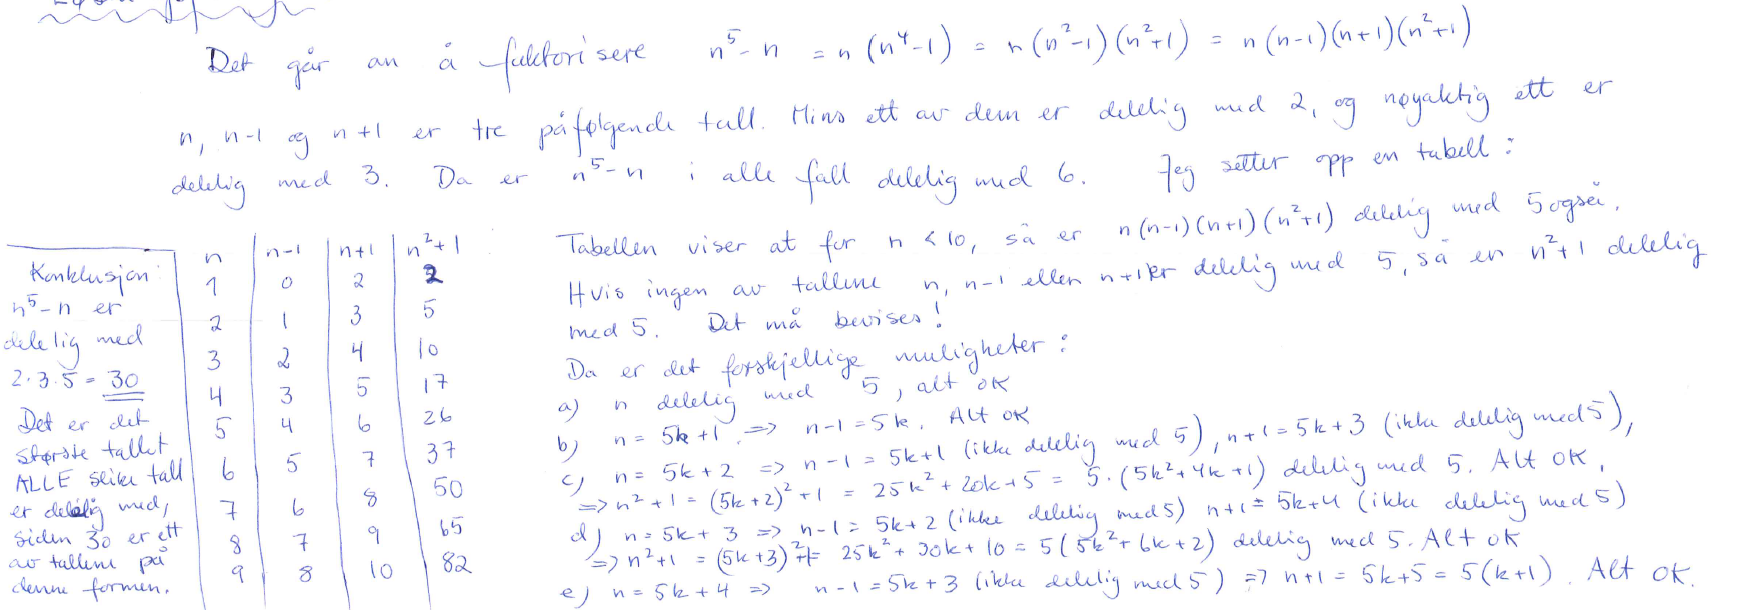 Det går an å faktorisere n⁵-n = n(n⁴-1) = n(n²-1)(n²+1) = n(n-1)(n+1)(n²+1)
n, n-1 og n+1 er tre påfølgende tall. Mins ett av dem er delelig med 2, og nøyaktig ett er
delelig med 3. Da er n⁵-n i alle fall delelig med 6. Jeg setter opp en tabell:
Tabellen viser at for n < 10, så er n(n-1)(n+1)(n²+1) delelig med 5 også.
Hvis ingen av tallene n, n-1 eller n+1 er delelig med 5, så er n²+1 delelig
med 5. Det må bevises!
Da er det forskjellige muligheter:
a) n delelig med 5, alt OK
b) n = 5k+1 => n-1 = 5k. Alt OK
c) n = 5k+2 => n-1 = 5k+1 (ikke delelig med 5), n+1 = 5k+3 (ikke delelig med 5),
=> n²+1 = (5k+2)²+1 = 25k²+20k+5 = 5·(5k²+4k+1) delelig med 5. Alt OK.
d) n = 5k+3 => n-1 = 5k+2 (ikke delelig med 5) n+1 = 5k+4 (ikke delelig med 5)
=> n²+1 = (5k+3)²+1 = 25k²+30k+10 = 5(5k²+6k+2) delelig med 5. Alt OK
e) n = 5k+4 => n-1 = 5k+3 (ikke delelig med 5) => n+1 = 5k+5 = 5(k+1). Alt OK.
n n-1 n+1 n²+1
1 0 2 2
2 1 3 5
3 2 4 10
4 3 5 17
5 4 6 26
6 5 7 37
7 6 8 50
8 7 9 65
9 8 10 82
Konklusjon:
n⁵-n er
delelig med
2·3·5 = 30
Det er det
største tallet
ALLE slike tall
er delelig med,
siden 30 er ett
av tallene på
denne formen.